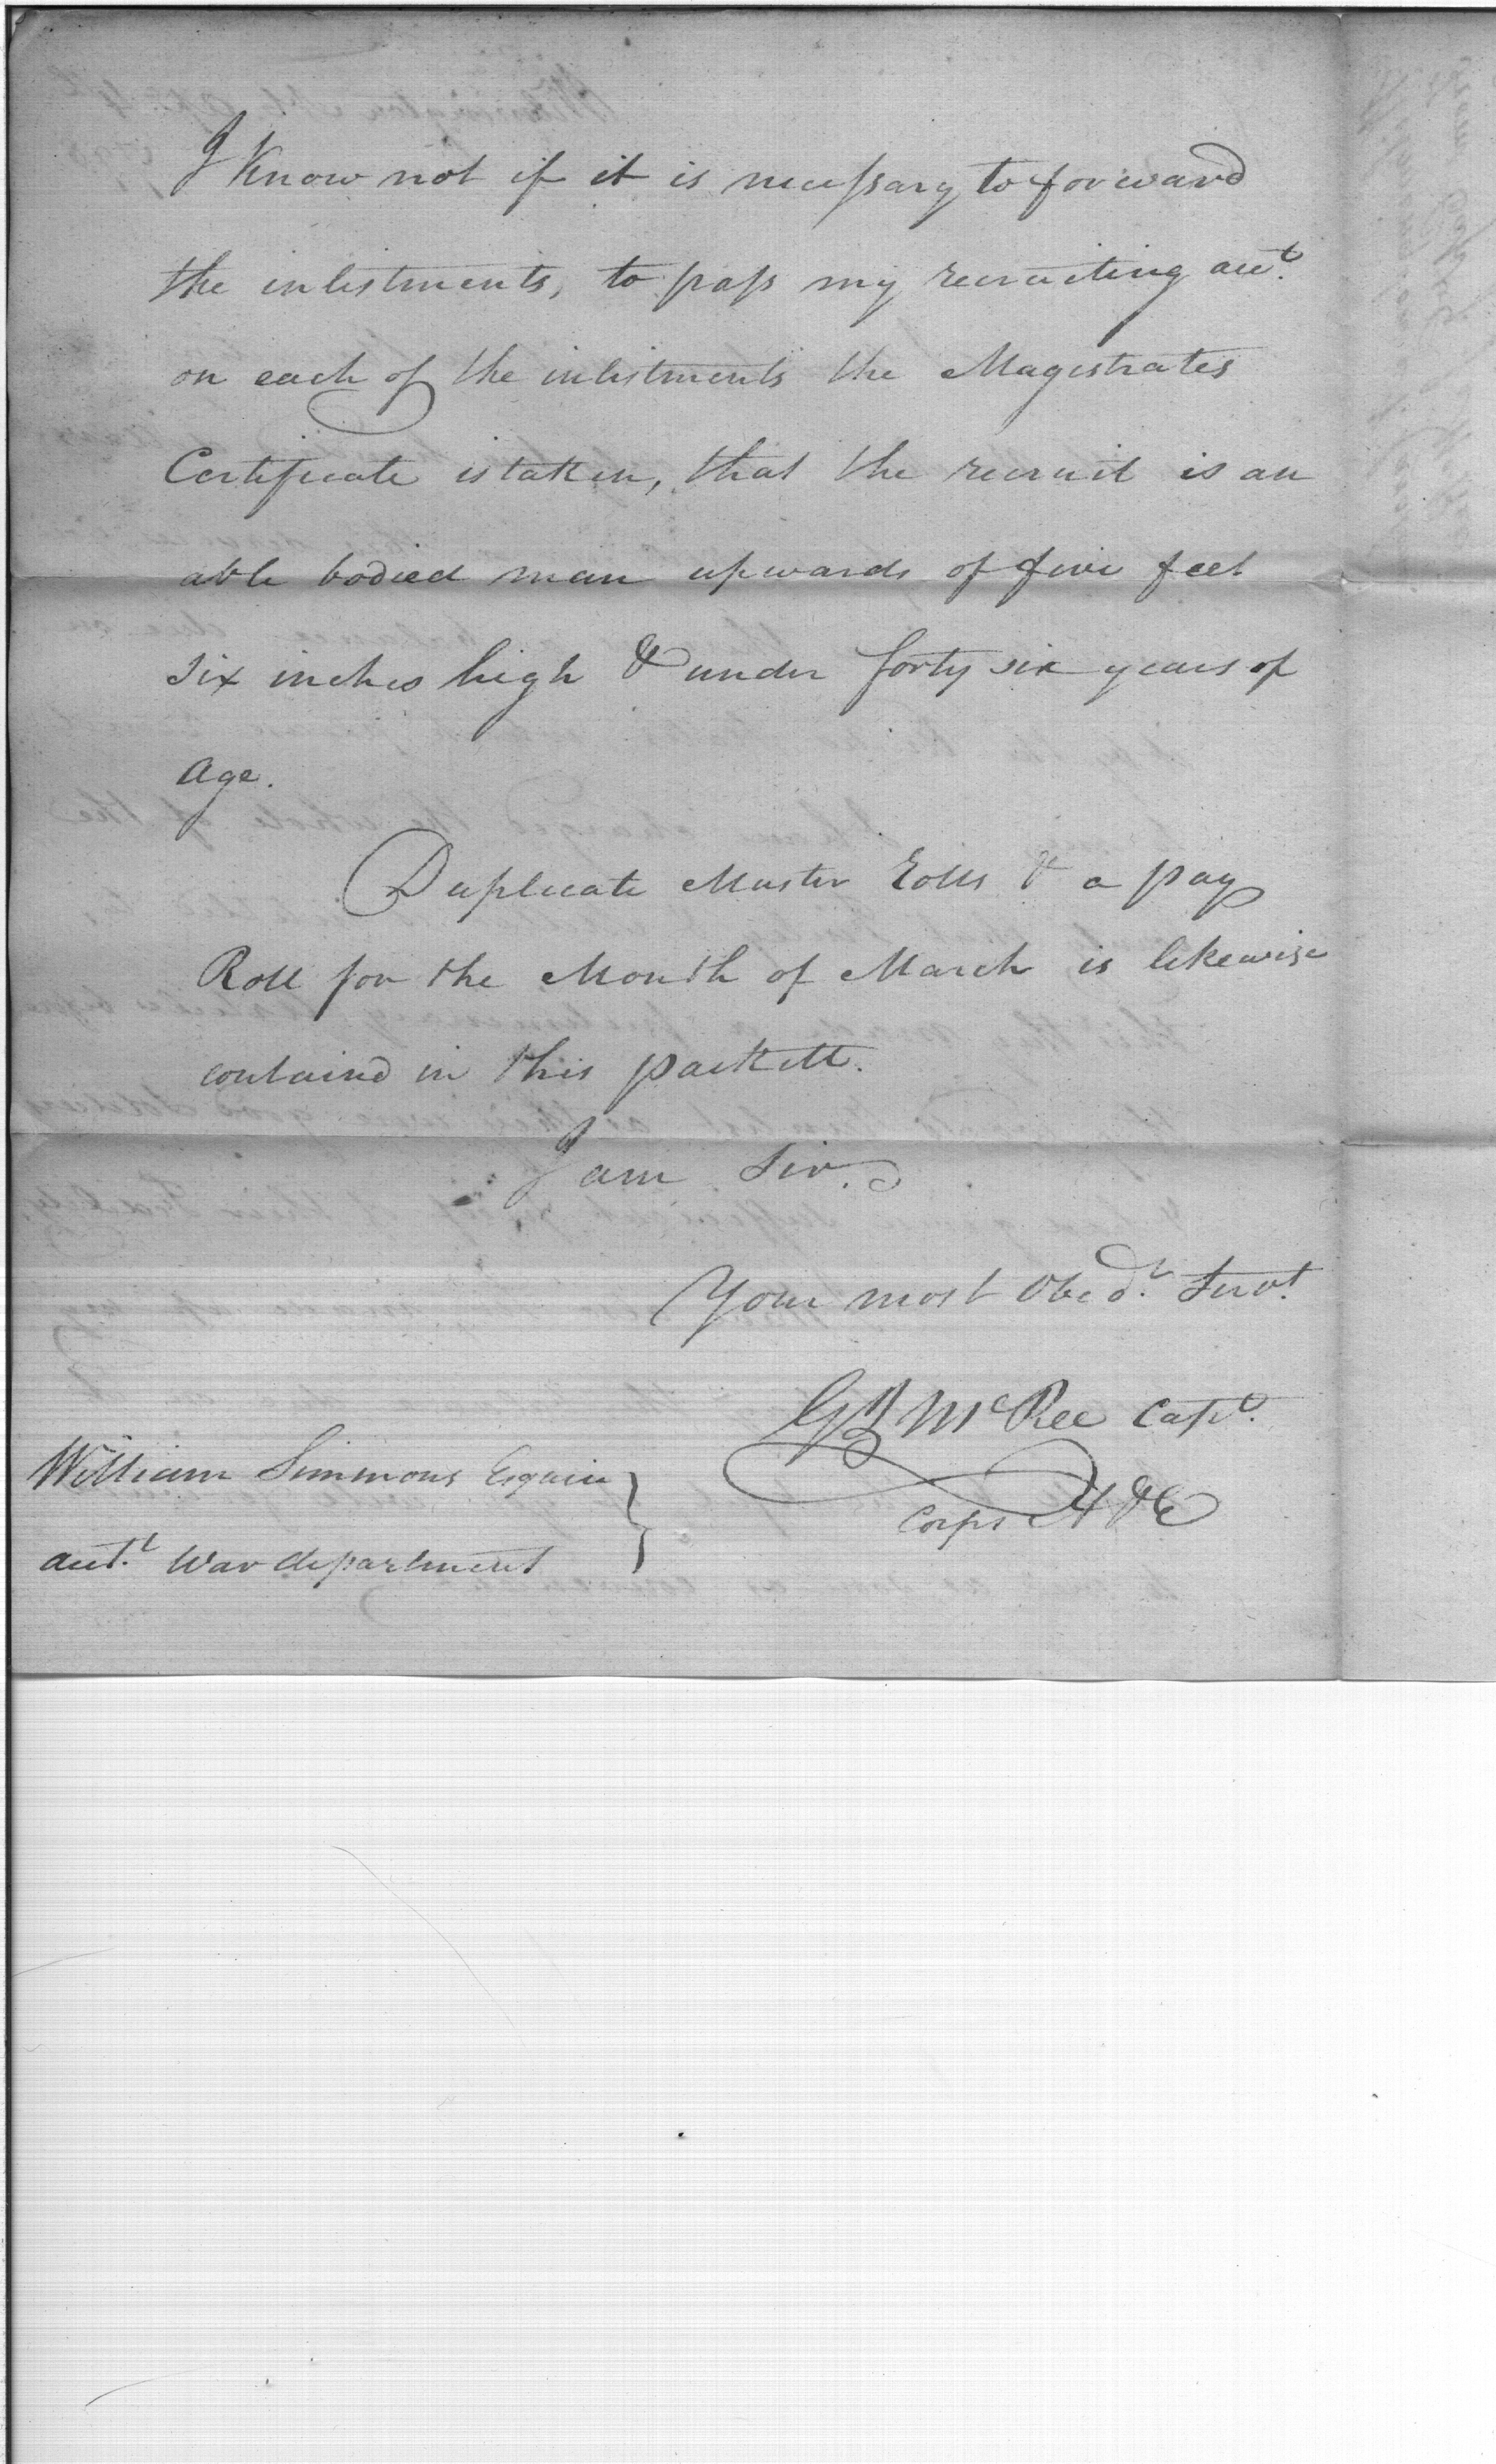 I Know not if it is necessary to forward
the inlistments, to pass my recruiting acct.
on each of the inlistments the Magistrates
Certificate is taken, that the recruit is an
able bodied man upwards of five feet
six inches high & under forty six years of
age.
Duplicate Muster Rolls & a pay
Roll for the Month of March is likewise
contained in this packett.
I am Sir.
Your most Obedt. Servt.
GB McRee Capt.
Corps A & E
William Simmons Esquire
acct. War department